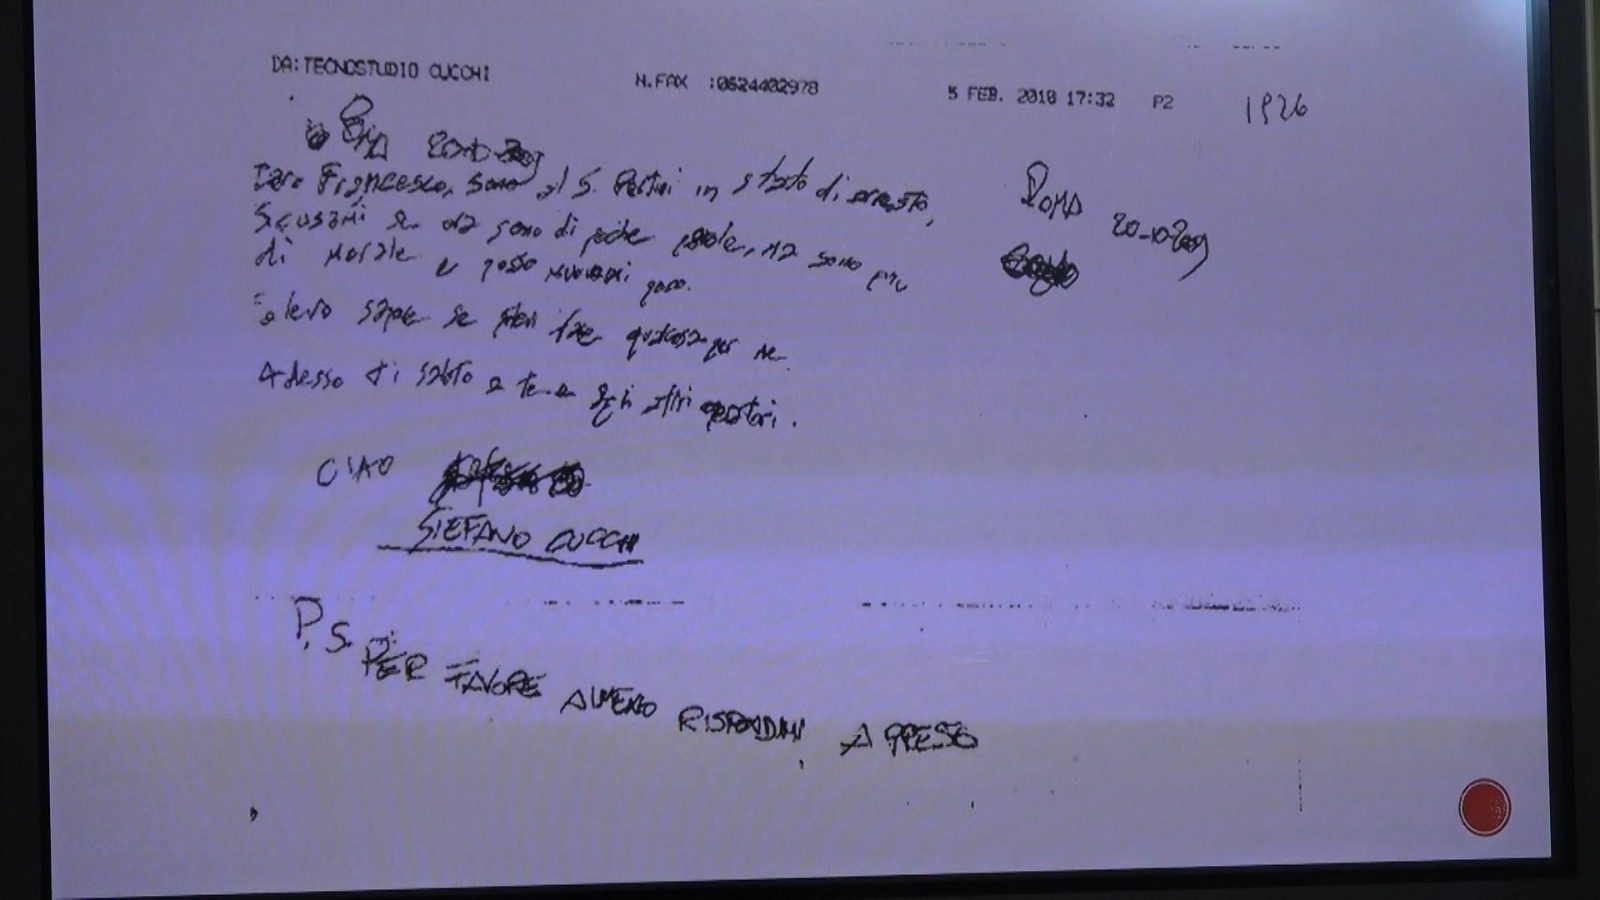 DA:TECNOSTUDIO CUCCHI N.FAX :0624402978 5 FEB. 2010 17:32 P2 1926
Roma 20-10-2009
Caro Francesco, sono al S. Pertini in stato di arresto,
Scusami se ora sono di poche parole, ma sono giù
di morale e posso muovermi poco.
Volevo sapere se potevi fare qualcosa per me
Adesso ti saluto a te e agli altri operatori.
ROMA 20-10-2009
CIAO
STEFANO CUCCHI
P.S. PER FAVORE ALMENO RISPONDIMI A PRESTO